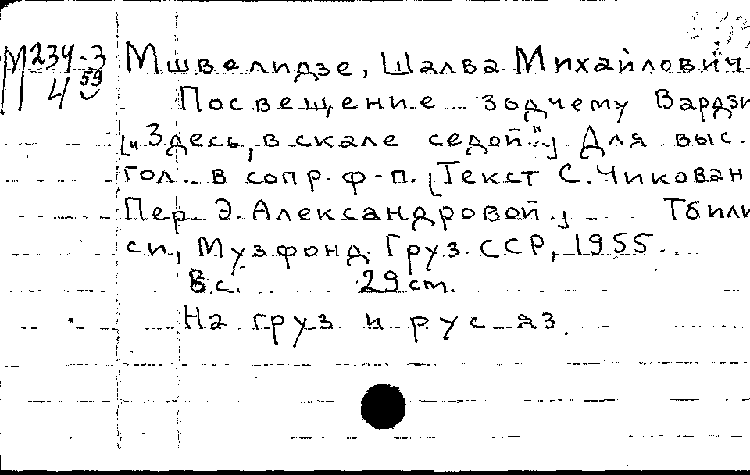 М234-3 Мшвелидзе, Шалва Михайлович
4 59
Посвещение зодчему Вардзи
[„Здесь, в скале седой"] Для выс.
гол. в сопр. ф-п. [Текст С. Чикован
Пер Э. Александровой.] Тбили
си, Музфонд Груз. ССР, 1955.
8 с. 29 cm.
На груз и рус яз.